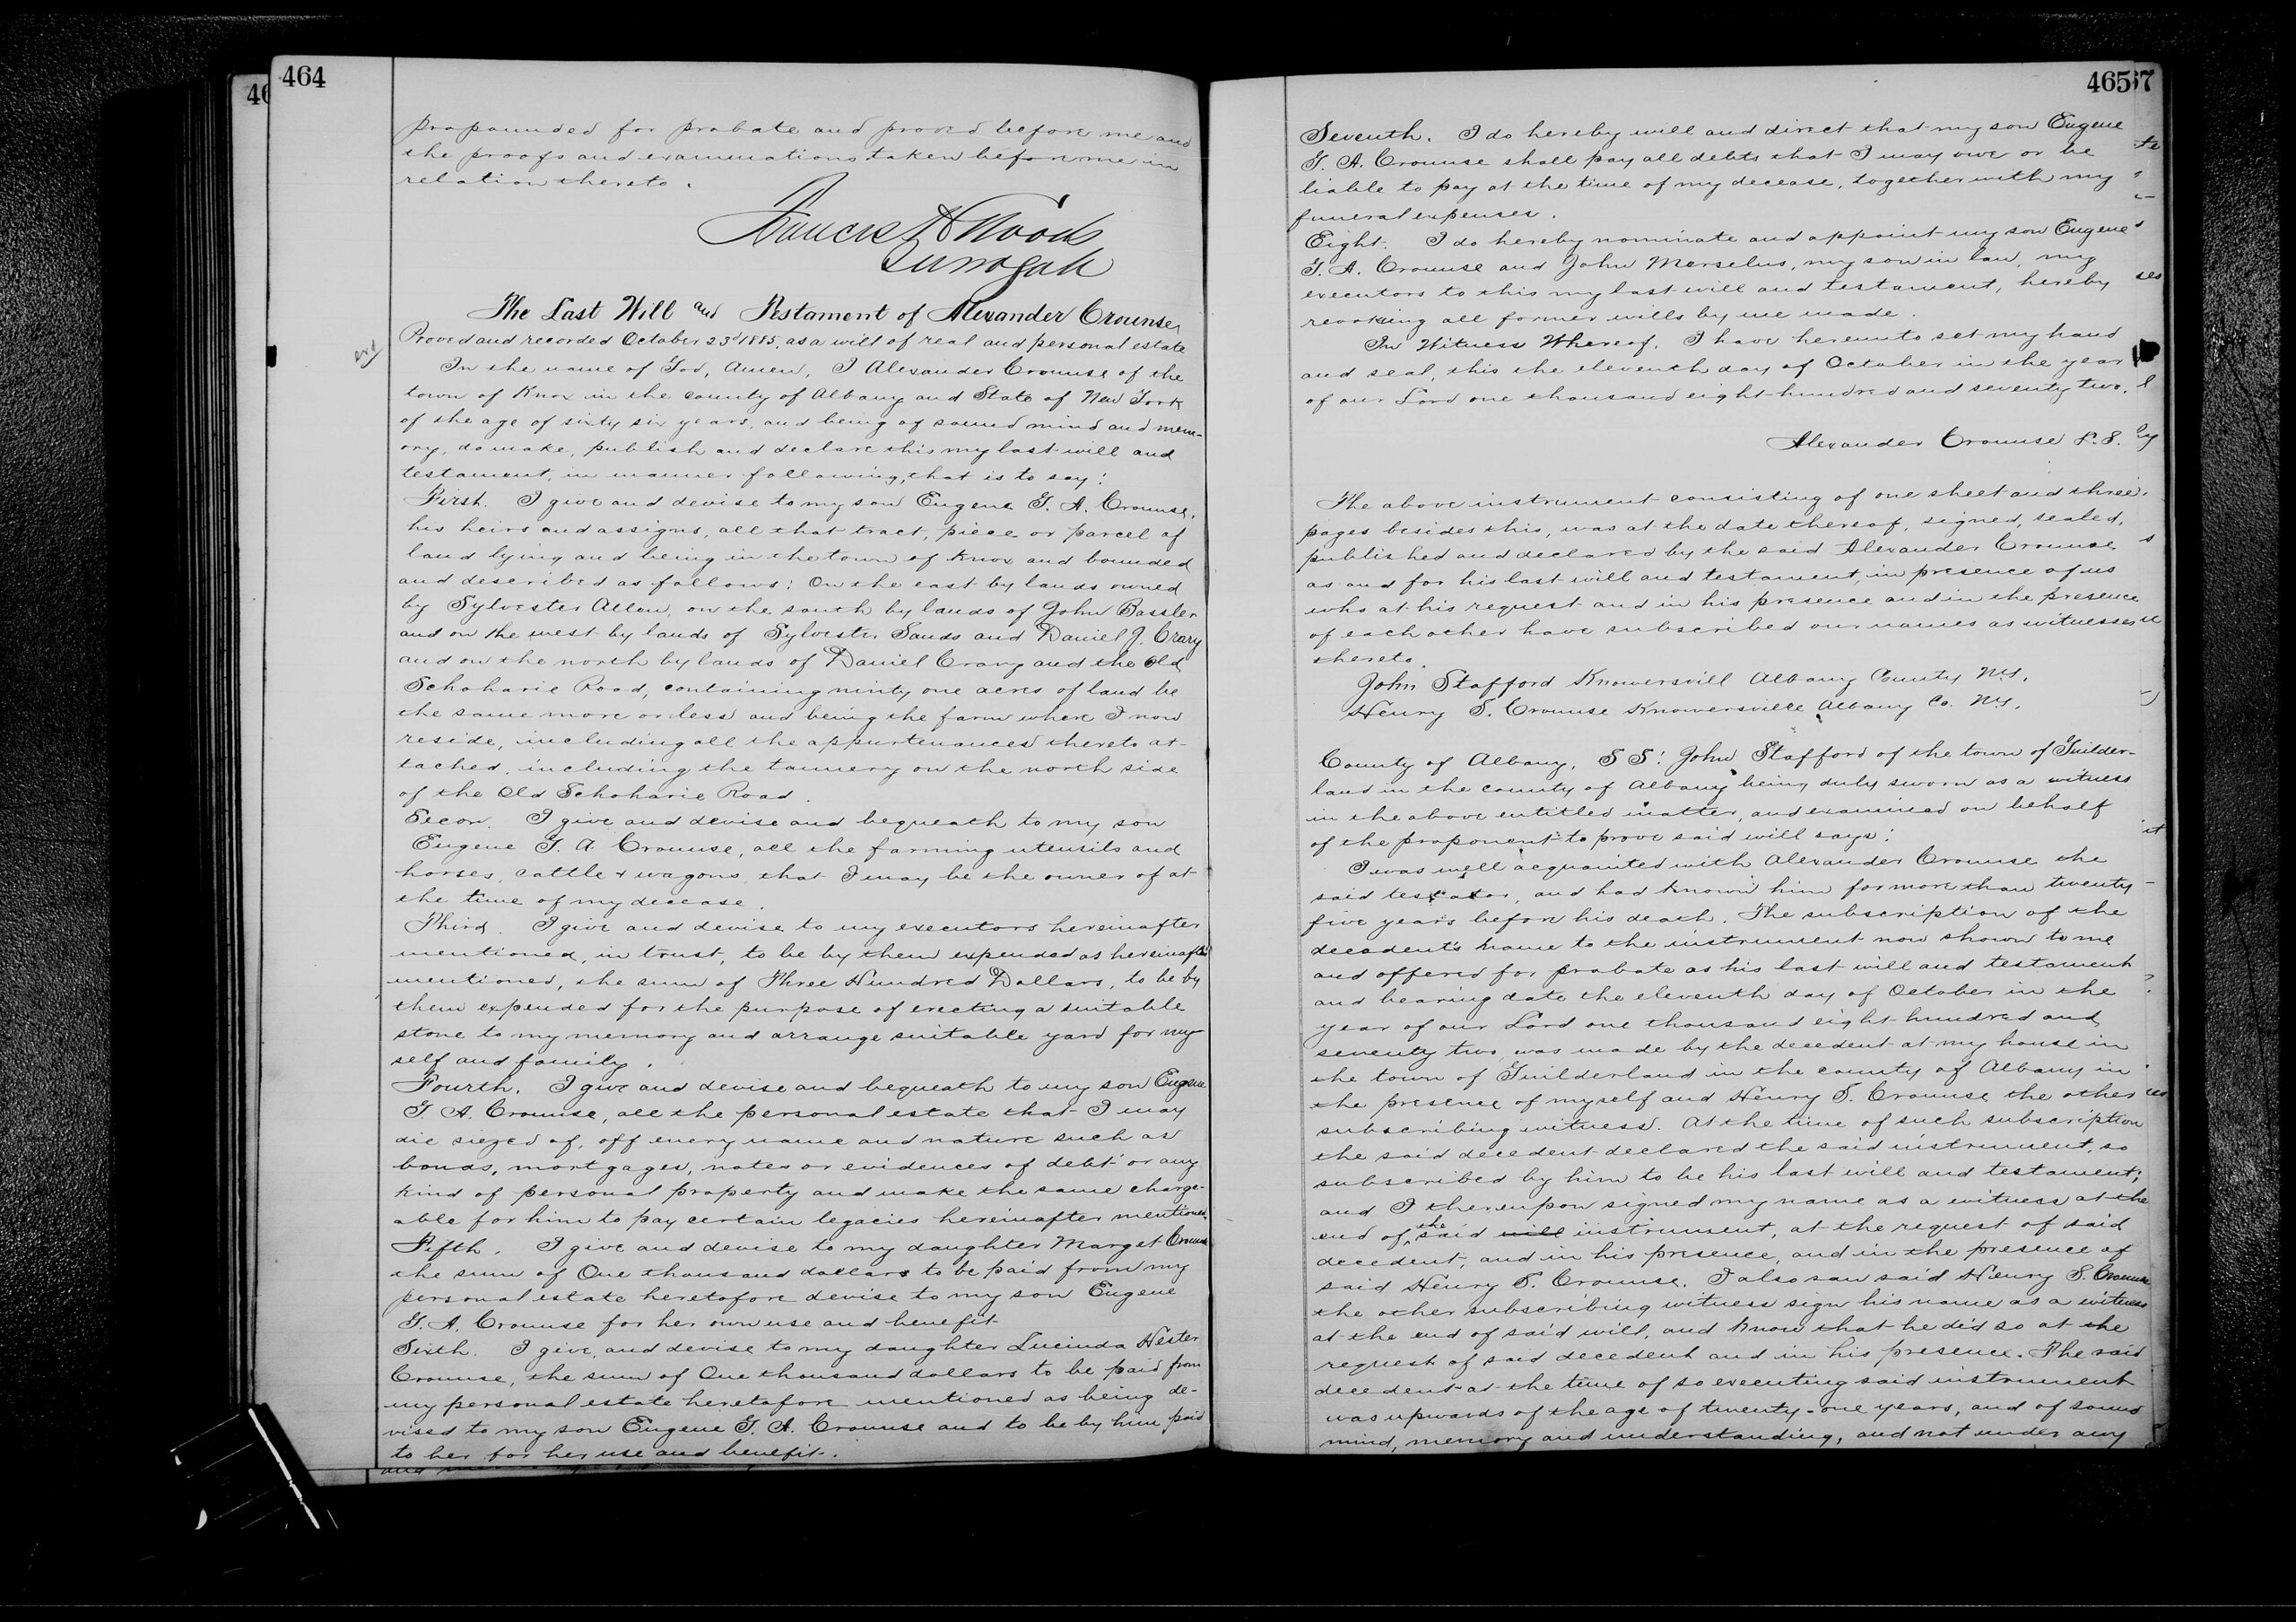 464
propounded for probate and proved before me and
the proofs and examinations taken before me in
relation thereto.
Francis H Woods
Surrogate
The Last Will and Testament of Alexander Crounse,
Proved and recorded October 23d 1885, as a will of real and personal estate
In the name of God, Amen, I Alexander Crounse of the
town of Knox in the county of Albany and State of New York
of the age of sixty six years, and being of sound mind and mem-
ory, do make, publish and declare this my last will and
testament, in manner following, that is to say:
First. I give and devise to my son Eugene G. A. Crounse,
his heirs and assigns, all that tract, piece or parcel of
land lying and being in the town of Knox and bounded
and described as follows: On the east by lands owned
by Sylvester Allen, on the south by lands of John Bassler
and on the west by lands of Sylvester Sands and Daniel J. Crary
and on the north by lands of Daniel Crary and the Old
Schoharie Road, containing ninty one acres of land be
the same more or less and being the farm where I now
reside, including all the appurtenances thereto at-
tached, including the tannery on the north side
of the Old Schoharie Road.
Secon. I give and devise and bequeath to my son
Eugene G. A. Crounse, all the farming utensils and
horses, cattle & wagons, that I may be the owner of at
the time of my decease.
Third. I give and devise to my executors hereinafter
mentioned, in trust, to be by them expended as hereinafter
mentioned, the sum of Three Hundred Dollars, to be by
them expended for the purpose of erecting a suitable
stone to my memory and arrange suitable yard for my
self and family.
Fourth. I give and devise and bequeath to my son Eugene
G. A. Crounse, all the personal estate that I may
die siezed of, off every name and nature such as
bonds, mortgages, notes or evidences of debt or any
kind of personal property and make the same charge-
able for him to pay certain legacies hereinafter mentioned.
Fifth. I give and devise to my daughter Marget Crounse
the sum of One thousand dollars to be paid from my
personal estate heretofore devise to my son Eugene
G. A. Crounse for her own use and benefit
Sixth. I give, and devise to my daughter Lucinda Hester
Crounse, the sum of One thousand dollars to be paid from
my personal estate heretofore mentioned as being de-
vised to my son Eugene G. A. Crounse and to be by him paid
to her for her use and benefit.
465
Seventh. I do hereby will and direct that my son Eugene
G. A. Crounse shall pay all debts that I may owe or be
liable to pay at the time of my decease, together with my
funeral expenses.
Eight. I do hereby nominate and appoint my son Eugene
G. A. Crounse and John Marselus, my son in law, my
executors to this my last will and testament, hereby
revoking all former wills by me made.
In Witness Whereof, I have hereunto set my hand
and seal, this the eleventh day of October in the year
of our Lord one thousand eight hundred and seventy two.
Alexander Crounse L. S.
The above instrument consisting of one sheet and three
pages besides this, was at the date thereof, signed, sealed,
published and declared by the said Alexander Crounse
as and for his last will and testament, in presence of us
who at his request and in his presence and in the presence
of each other have subscribed our names as witnesses
thereto.
John Stafford Knowersvill Albany County N.Y.
Henry S. Crounse Knowersville Albany Co. N.Y.
County of Albany, S S: John Stafford of the town of Guilder-
land in the county of Albany being duly sworn as a witness
in the above entitled matter, and examined on behalf
of the proponent to prove said will says:
I was well acquainted with Alexander Crounse the
said testator, and had known him for more than twenty-
five years before his death. The subscription of the
decedent's name to the instrument now shown to me
and offered for probate as his last will and testament
and bearing date the eleventh day of October in the
year of our Lord one thousand eight hundred and
seventy two, was made by the decedent at my house in
the town of Guilderland in the county of Albany in
the presence of myself and Henry S. Crounse the other
subscribing witness. At the time of such subscription
the said decedent declared the said instrument, so
subscribed by him to be his last will and testament;
and I thereupon signed my name as a witness at the
end of the said will instrument, at the request of said
decedent, and in his presence, and in the presence of
said Henry S. Crounse. I also saw said Henry S. Crounse
the other subscribing witness sign his name as a witness
at the end of said will, and know that he did so at the
request of said decedent and in his presence. The said
decedent at the time of so executing said instrument
was upwards of the age of twenty-one years, and of sound
mind, memory and understanding, and not under any